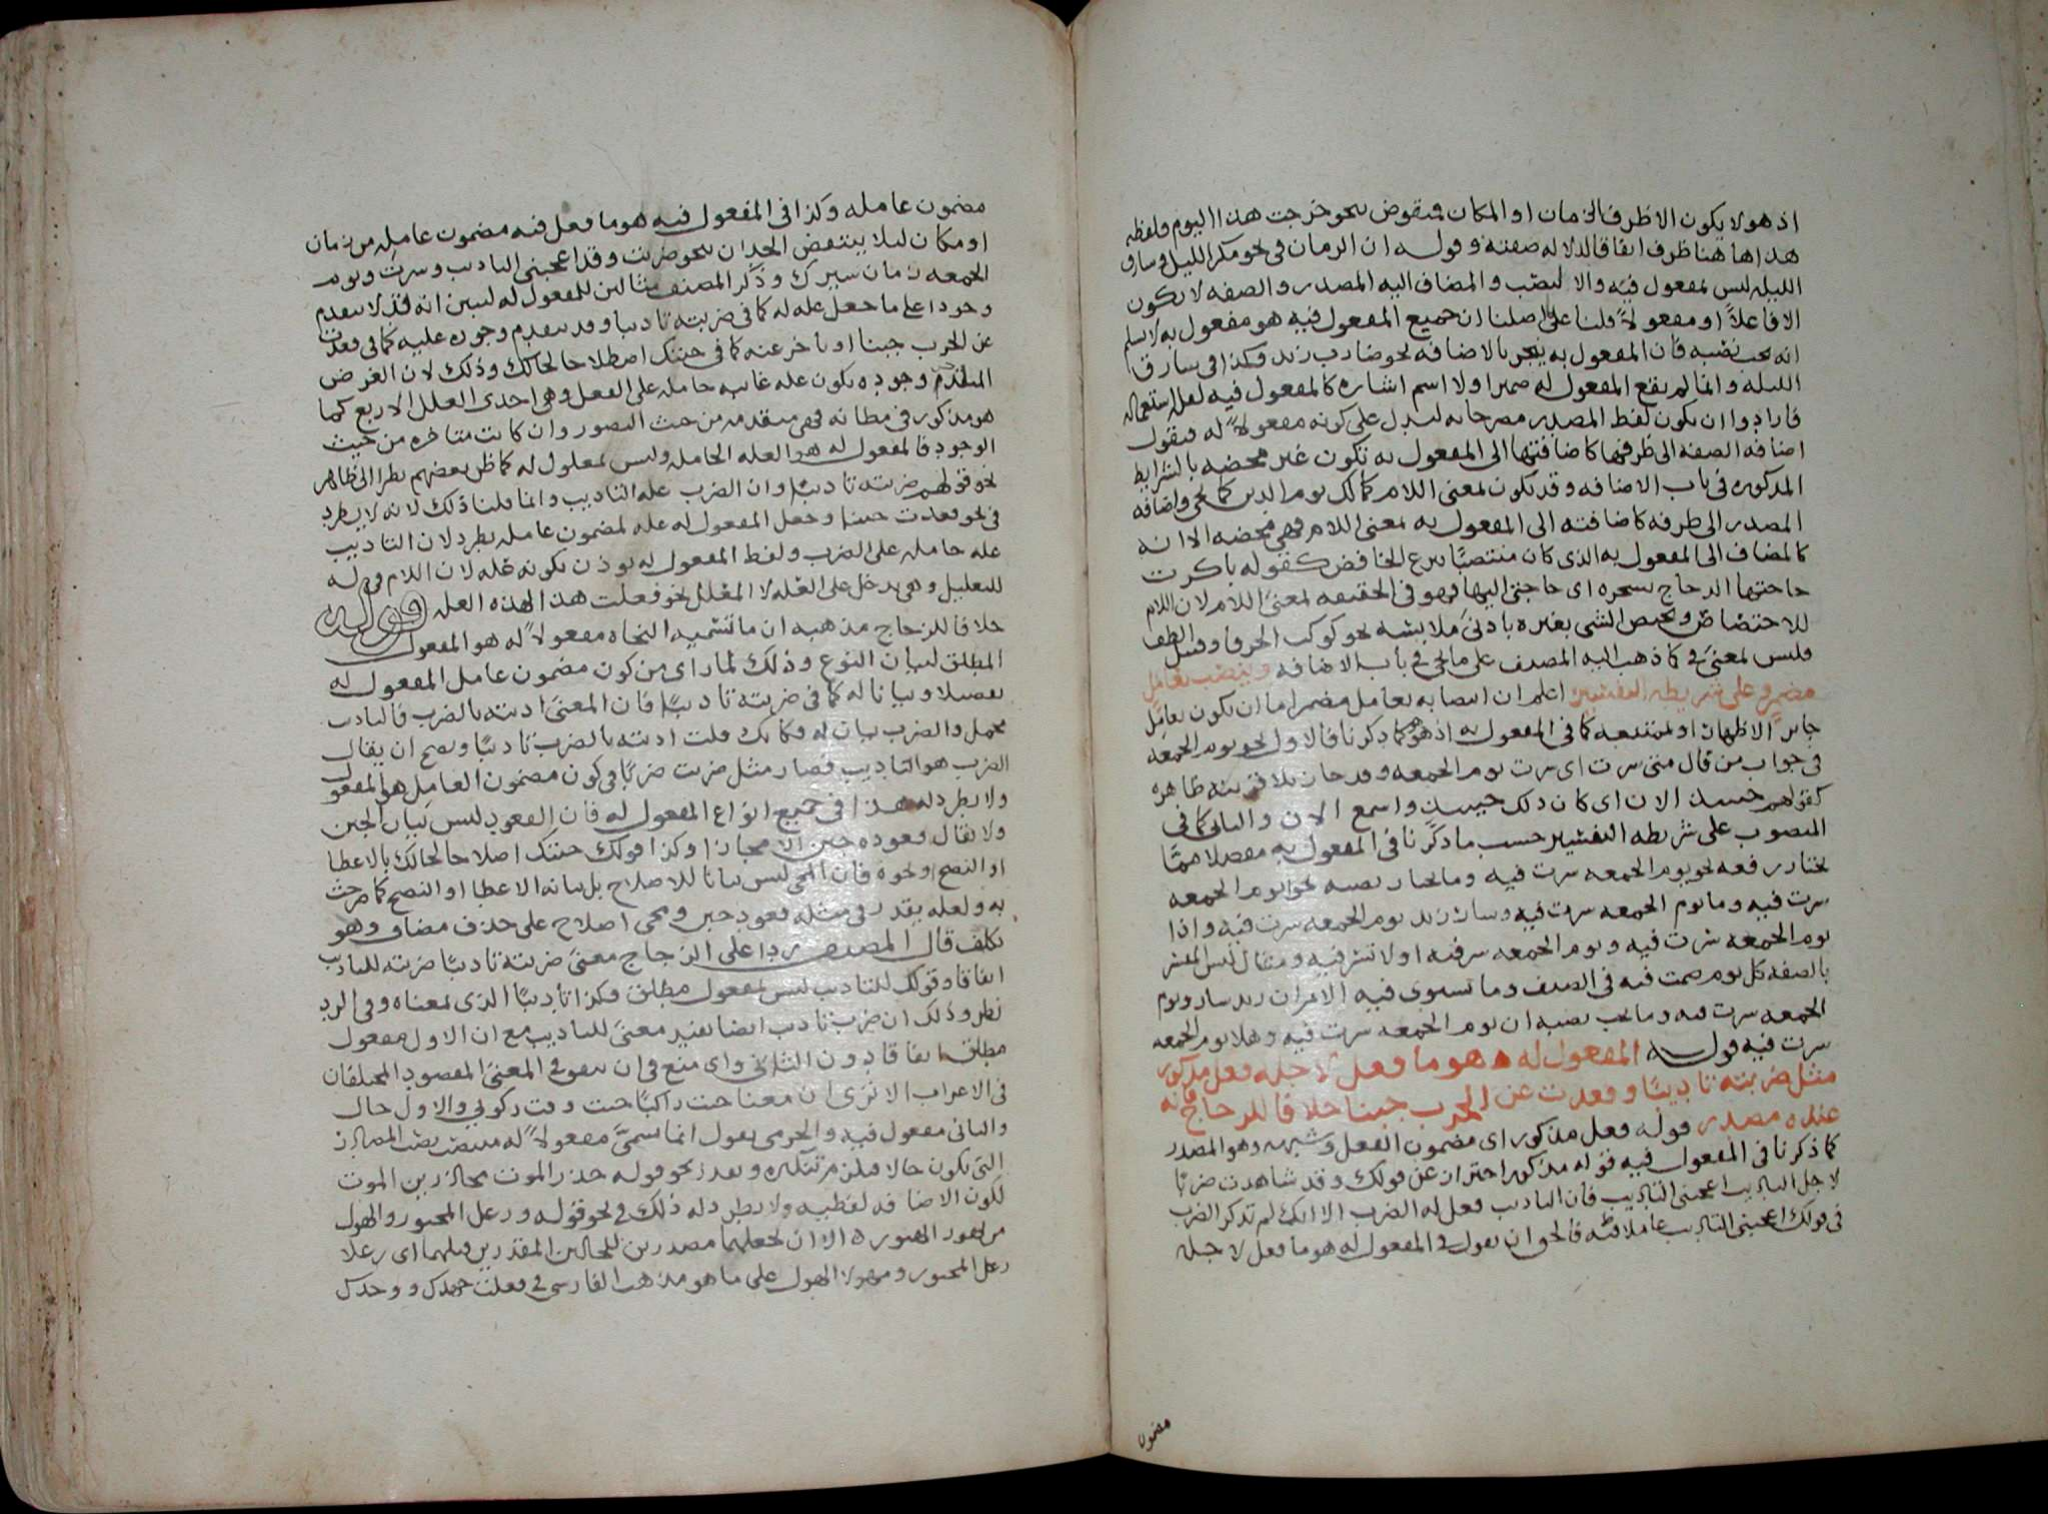 اذ هو لا يكون الا ظرف الزمان او المكان فيقوض بنحو خرجت هذا اليوم فلفظه
هذا ها هنا ظرف اتفاقا لدلاله صفته وقوله ان الزمان في نحو مكر الليل وسارق
الليله ليس بمفعول فيه والا لنتصب والمضاف اليه المصدر والصفه لا يكون
الا فاعلاً او مفعولاً قلنا على اصلنا ان جميع المفعول فيه هو مفعول به لا سلم
انه يجب نصبه فان المفعول به ينجر بالاضافه نحو ضارب زيد فكذا في يسارق
الليله وانما لم يقع المفعول له ضميرا ولا اسم اشاره كالمفعول فيه لقله استعماله
فارادوا ان يكون لفظ المصدر مصرحا به ليدل على كونه مفعولاً له فنقول
اضافه الصفه الى ظرفها كاضافتها الى المفعول به تكون غير محضه بالشرايط
المذكوره في باب الاضافه وقد يكون بمعنى اللام كمالك يوم الدين كما يجي واضافه
المصدر الى ظرفه كاضافته الى المفعول به بمعنى اللام فهي محضه الا انه
كالمضاف الى المفعول به الذي كان منتصبًا بنزع الخافض كقوله باكرت
حاجتها الدجاج بسحره اى حاجتى اليها فهو في الحقيقه بمعنى اللام لان اللام
للاختصاص ويختص الشى بغيره بادنى ملابسه نحو كوكب الخرقا وقتيل الطف
وليس بمعنى في كما ذهب اليه المصنف على ما يجي في باب الاضافه وينصب بعامل
مضمر وعلى شريطه التفسير اعلم ان انتصابه بعامل مضمر اما ان يكون بعامل
جايز الاظهار او ممتنعه كما في المفعول به اذ هو هو كما ذكرنا فالاول نحو يوم الجمعه
في جواب من قال متى سرت اى سرت يوم الجمعه وقد جا بلا قرينه ظاهره
كقولهم حينيذ الان اى كان ذلك حينيذ واسمع الان والثانى كما في
المنصوب على شريطه التفسير حسب ما ذكرنا في المفعول به مفصلا فممّا
يختار رفعه نحو يوم الجمعه سرت فيه وما يختار نصبه نحو ايوم الجمعه
سرت فيه وما يوم الجمعه سرت فيه وسار زيد يوم الجمعه سرت فيه واذا
يوم الجمعه سرت فيه ويوم الجمعه سر فيه او لا تسر فيه ومثال لبس المفسر
بالصفه كل يوم صمت فيه في الصيف وما تستوى فيه الامران زيد سار ويوم
الجمعه سرت فيه وما يجب نصبه ان يوم الجمعه سرت فيه وهلا يوم الجمعه
سرت فيه قوله المفعول له هو ما فعل لاجله فعل مذكور
مثل ضربته تاديبًا وقعدت عن الحرب جبنا خلافا للزجاج فانه
عنده مصدر قوله فعل مذكور اى مضمون الفعل وشبهه وهو المصدر
كما ذكرنا في المفعول فيه قوله مذكور احتراز عن قولك وقد شاهدت ضربًا
لاجل التاديب اعجبنى التاديب فان التاديب فعل له الضرب الا انك لم تذكر الضرب
في قولك اعجبنى التاديب عاملا فيه فالحق ان يقول في المفعول له هو ما فعل لاجله
مضمون
مضمون عامله وكذا في المفعول فيه هو ما فعل فيه مضمون عامله من زمان
او مكان ليلا ينتقض الحدان بنحو ضربت وقد اعجبنى التاديب وسرت ويوم
الجمعه زمان سيرك وذكر المصنف مثالين للمفعول له ليبين انه قد لا يتقدم
وجودا على ما جعل عله له كما في ضربته تاديبا وقد يتقدم وجوده عليه كما في قعدت
عن الحرب جبنا او يتاخر عنه كما في جيتك اصطلاحا لحالك وذلك لان الغرض
المتقدم وجوده يكون عله غاييه حامله على الفعل وهي احدى العلل الاربع كما
هو مذكور في مظانه فهي متقدمه من حيث التصور وان كانت متاخره من حيث
الوجود فالمفعول له هو العله الحامله وليس بمعلول له كما ظن بعضهم نظرا الى ظاهر
نحو قولهم ضربته تاديبًا وان الضرب عله التاديب وانما قلنا ذلك لانه لا يطرد
في نحو قعدت جبنا وجعل المفعول له عله لمضمون عامله يطرد لان التاديب
عله حامله على الضرب ولفظ المفعول له يوذن بكونه عله لان اللام في له
للتعليل وهي يدخل على العله لا المعلل نحو فعلت هذا لهذه العله قوله
خلافا للزجاج مذهبه ان ما تسميه النحاه مفعولاً له هو المفعول
المطلق لبيان النوع وذلك لما راى من كون مضمون عامل المفعول له
تفصيلا وبيانا له كما في ضربته تاديبًا فان المعنى ادبته بالضرب فالتاديب
مجمل والضرب بيان له فكانك قلت ادبته بالضرب تاديبًا ويصح ان يقال
الضرب هو التاديب فصار مثل ضربت ضربًا في كون مضمون العامل هو المفعول
ولا يطرد له هذا في جميع انواع المفعول له فان القعود ليس بيان الجبن
ولا يقال قعوده جبن الا مجازا وكذا قولك جيتك اصلاحا لحالك بالاعطا
او النصح او نحوه فان المجى ليس بيانا للاصلاح بل بيانه الاعطا او النصح كما صرحت
به ولعله يقدر في مثله قعود جبن ومجى اصلاح على حذف مضاف وهو
تكلف قال المصنف ردا على الزجاج معنى ضربته تاديبًا ضربته للتاديب
اتفاقا وقولك للتاديب ليس بمفعول مطلق فكذا تاديبًا الذى بمعناه وفي الرد
نظر وذلك ان ضرب تاديب ايضا يفيد معنى للتاديب مع ان الاول مفعول
مطلق اتفاقا دون الثانى واى منع في ان يتفق في المعنى المقصود المختلفان
في الاعراب الا ترى ان معنا جيت راكبًا جيت وقت ركوبى والاول حال
والثانى مفعول فيه والجرمى يقول انما يسمّى مفعولاً له منتصب نصب المصادر
التى تكون حالا فيلزم تنكيره ويعذر نحو قوله حذر الموت محاذرين الموت
لكون الاضافه لفظيه ولا يطرد له ذلك في نحو قوله وزعل المحبور والهول
من تهور الهبور الا ان نجعلهما مصدرين للحالين المقدرين قبلهما اى زعلا
زعل المحبور ومهولا الهول على ما هو مذهب الفارسى في فعلت جهدك ووحدك